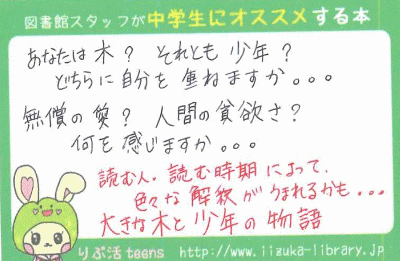 図書館スタッフが中学生にオススメする本
あなたは木？それとも少年？
どちらに自分を重ねますか。。。
無償の愛？人間の貪欲さ？
何を感じますか。。。
読む人・読む時期によって、
色々な解釈がうまれるかも・・・
大きな木と少年の物語
りぶ活teens http://www.iizuka-library.jp